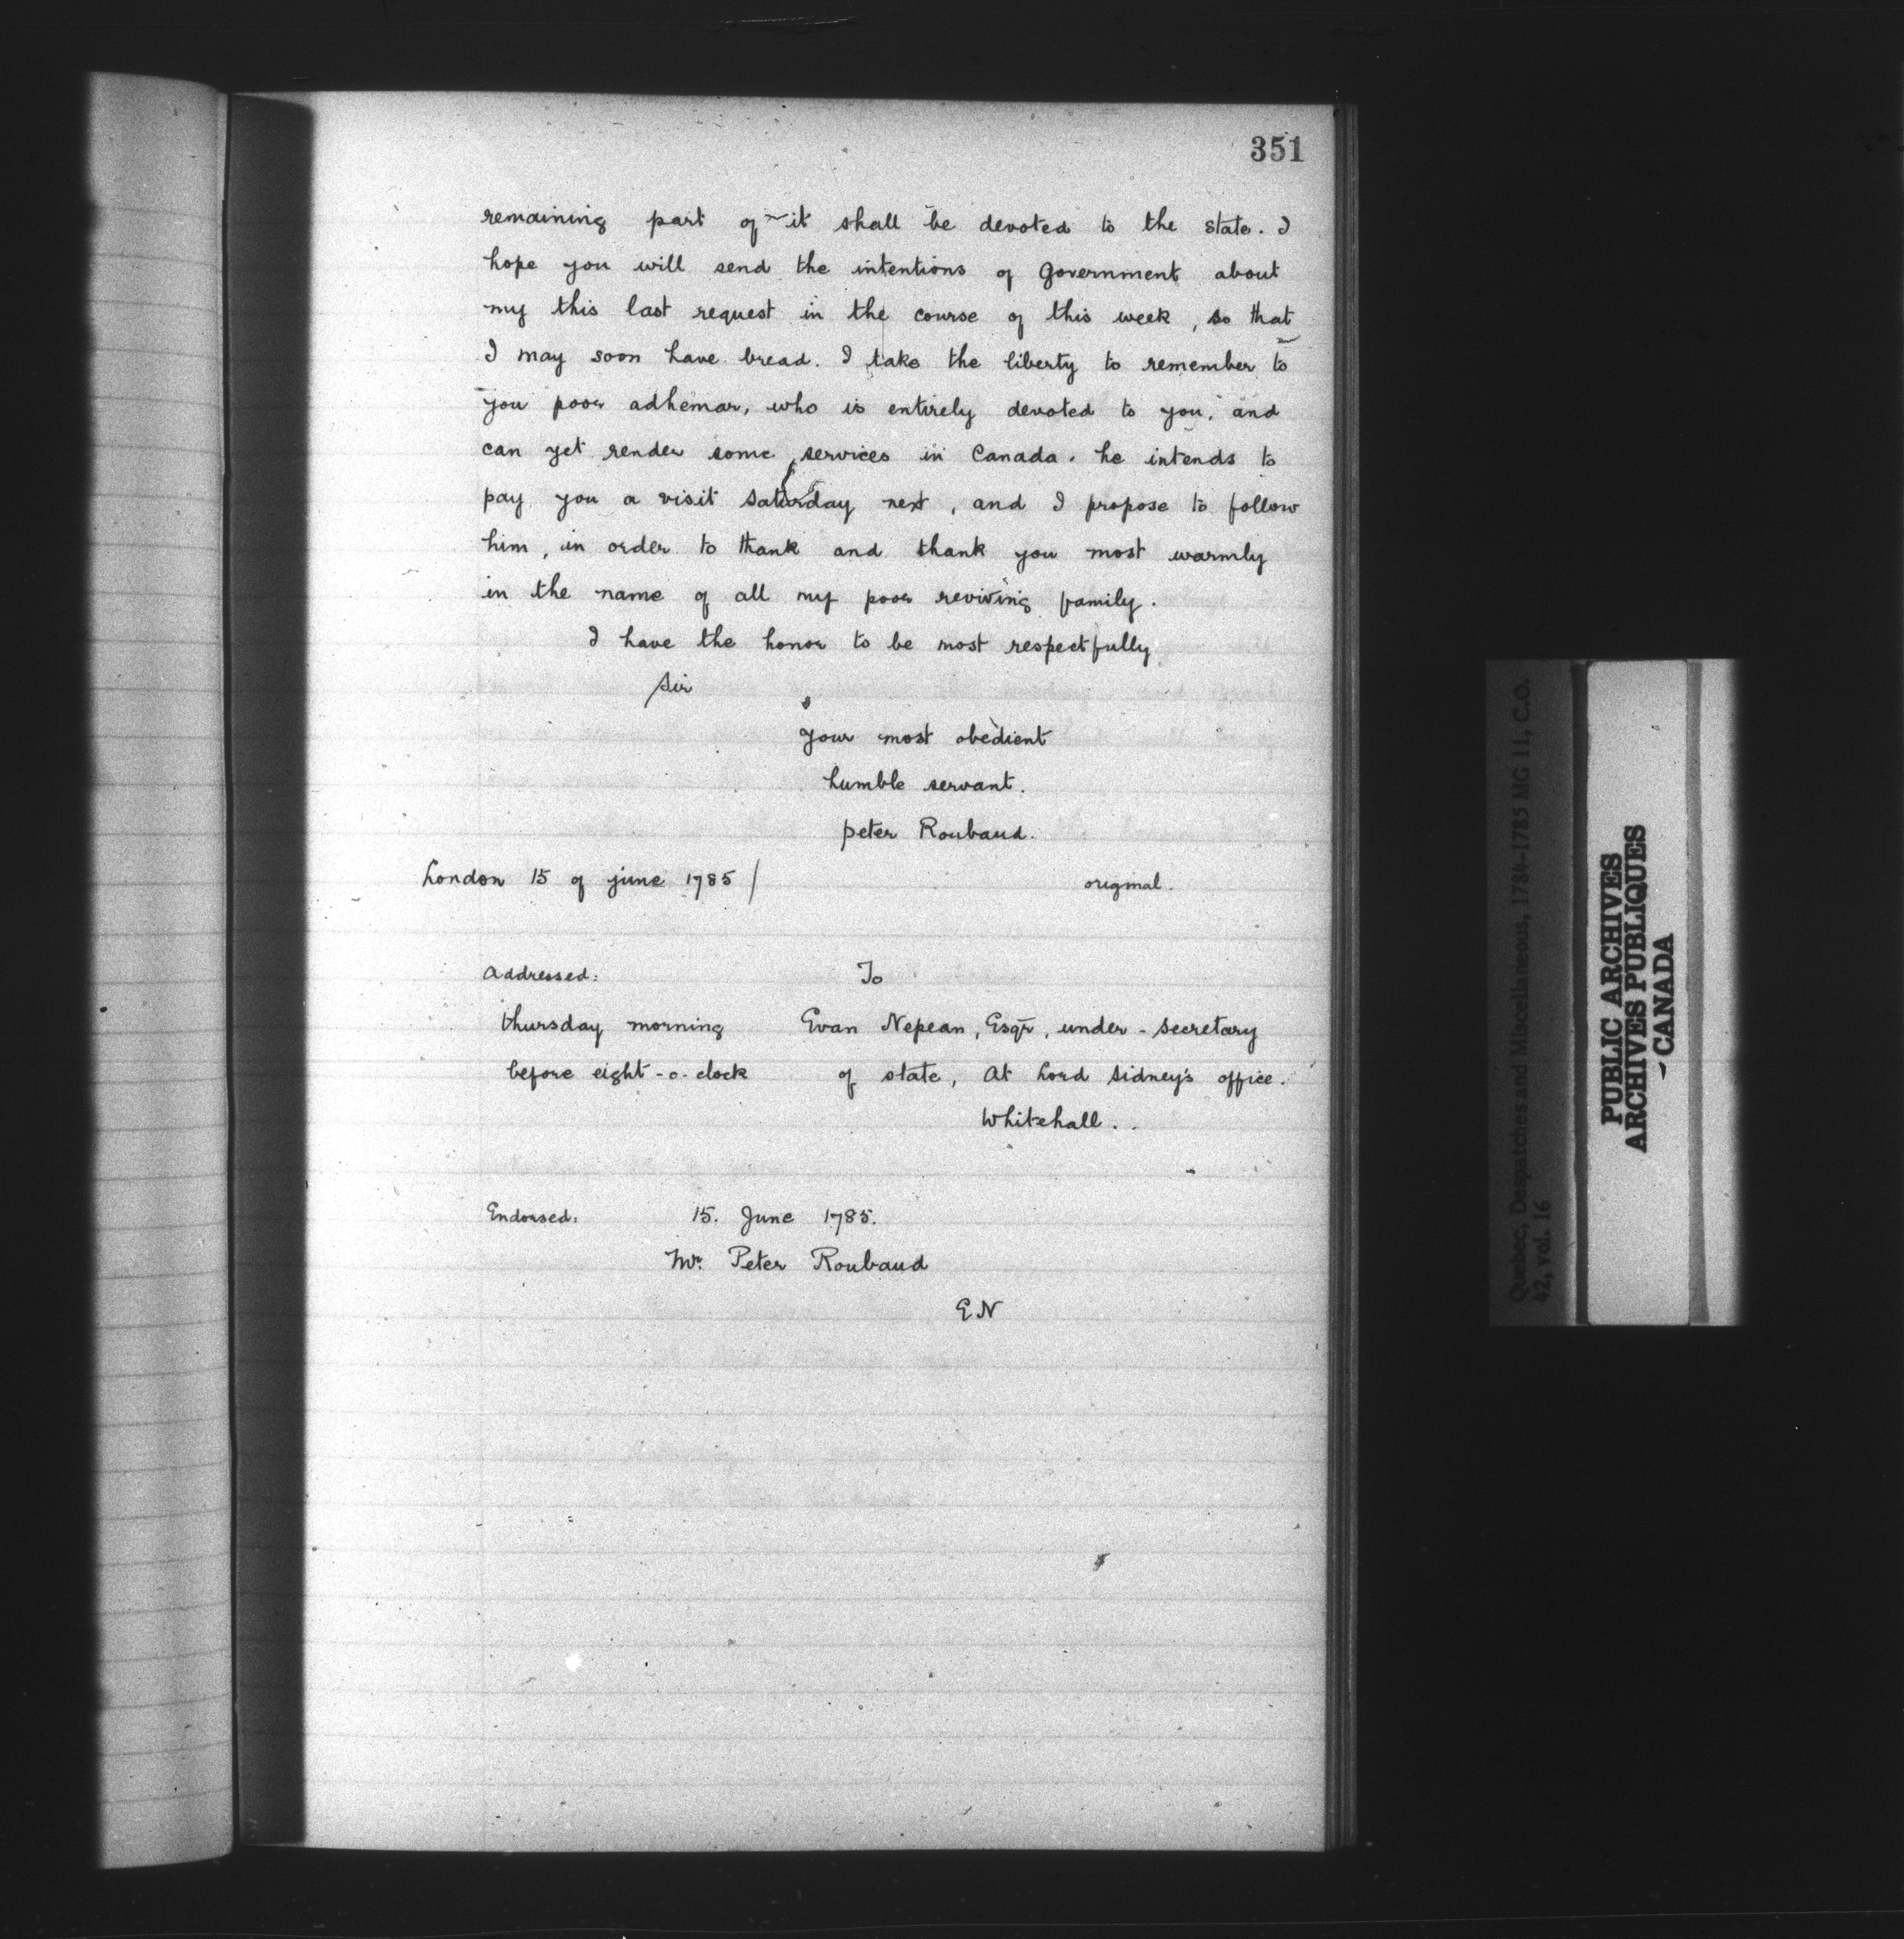 351
remaining part of it shall be devoted to the state. I
hope you will send the intentions of government about
my this last request in the course of this week, so that
I may soon have bread. I take the liberty to remember to
you poor adhemar, who is entirely devoted to you, and
can yet render some services in Canada. he intends to
pay you a visit saturday next, and I propose to follow
him, in order to thank and thank you most warmly
in the name of all my poor reviving family.
I have the honor to be most respectfully
Sir
your most obedient
humble servant.
peter Roubaud.
London 15 of june 1785/ original.
Addressed: To
thursday morning Evan Nepean, Esqr, under-secretary
before eight-o-clock of state, At Lord Sidney's office.
Whitehall.
Endorsed: 15. June 1785.
Mr. Peter Roubaud
EN
Quebec, Despatches and Micellaneous, 1784-1785 MG 11, C.O.
42, vol. 16
PUBLIC ARCHIVES
ARCHIVES PUBLIQUES
CANADA